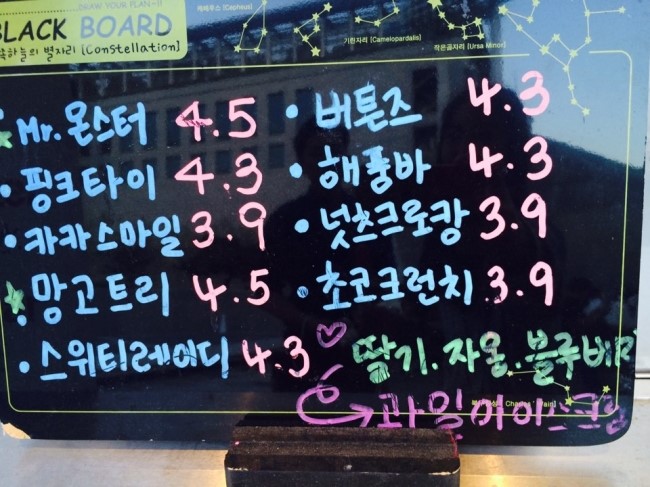 DRAW YOUR PLAN~!!
BLACK BOARD
북하늘의 별자리 [Constellation]
[Cepheus]
기린자리 [Camelopardalis]
작은곰자리 [Ursa Minor]
Mr. 몬스터 4.5
핑크타이 4.3
카카스마일 3.9
망고트리 4.5
스위티레이디 4.3
버튼즈 4.3
해풍바 4.3
넛츠크로캉 3.9
초코크런치 3.9
딸기. 자몽. 블루베리
과일아이스크림